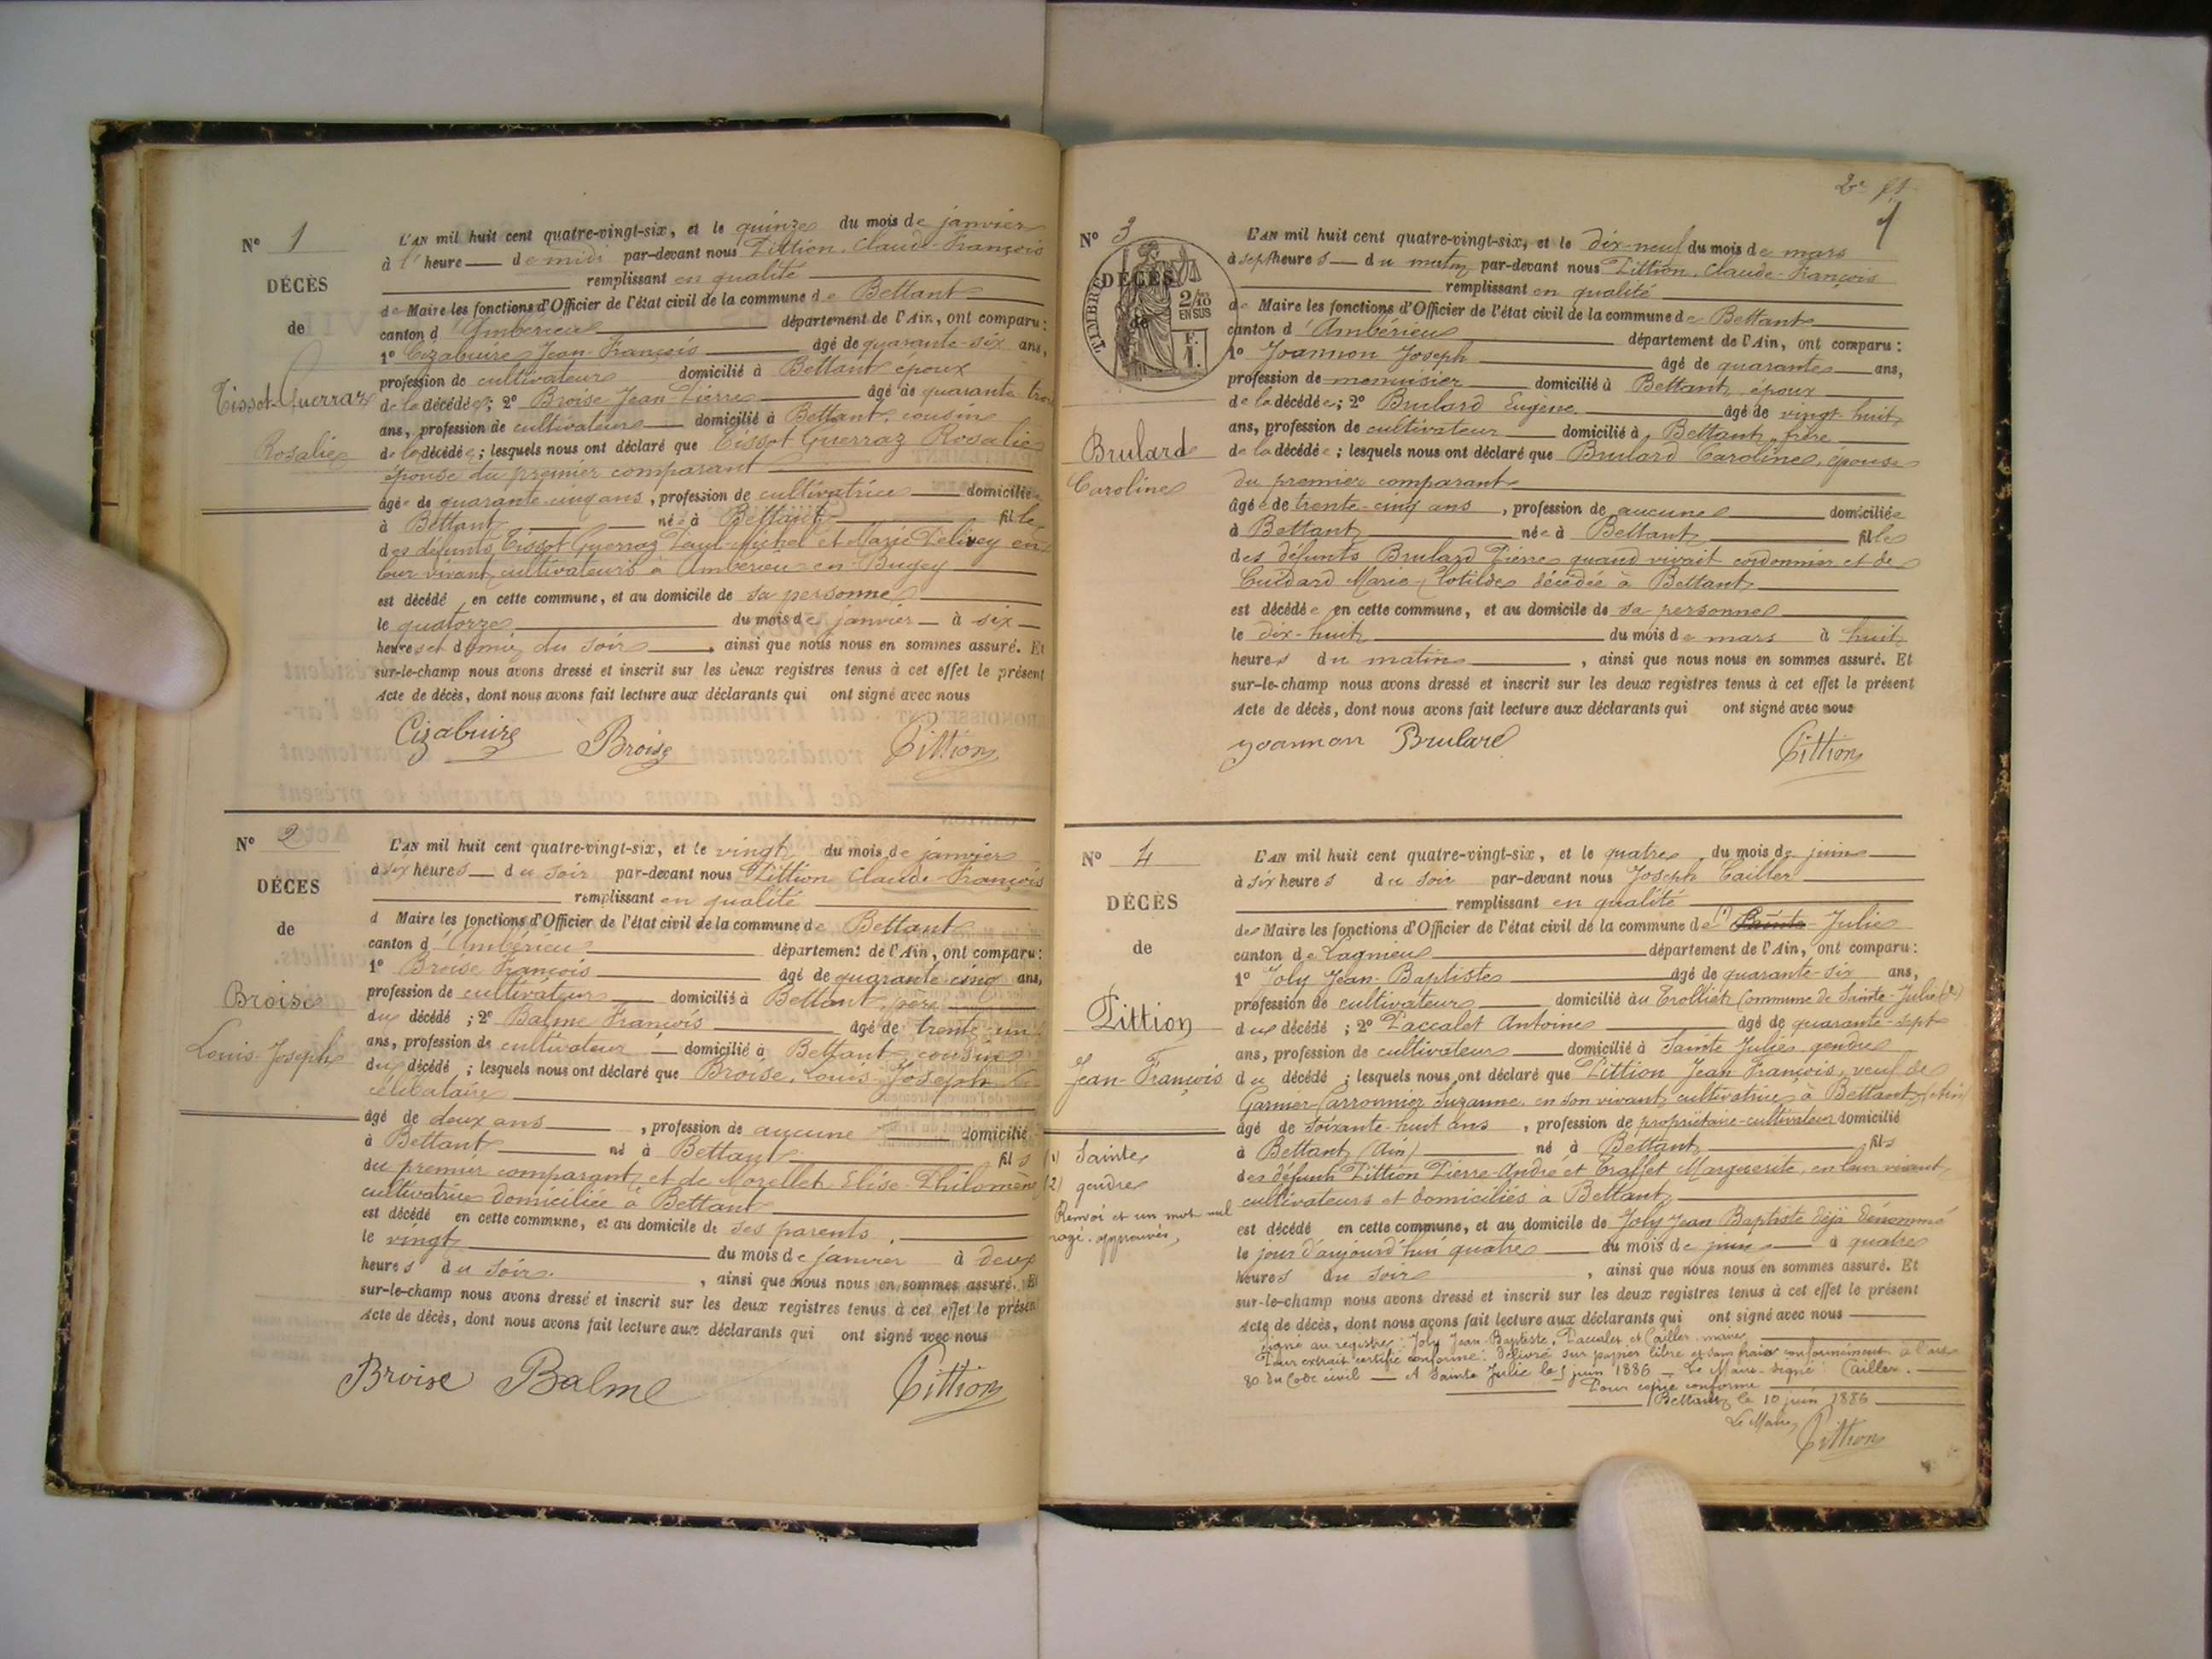 N° 1
DÉCÈS
de
Tissot-Guerraz
Rosalie
L'AN mil huit cent quatre-vingt-six, et le quinze du mois de janvier
à l'heure de midi par-devant nous Pittion, Claude-François
remplissant en qualité
de Maire les fonctions d'Officier de l'état civil de la commune de Bettant
canton d'Ambérieu département de l'Ain, ont comparu :
1° Cizabuire Jean-François âgé de quarante-six ans,
profession de cultivateur domicilié à Bettant époux
de la décédée ; 2° Broise Jean-Pierre âgé de quarante trois
ans, profession de cultivateur domicilié à Bettant, cousin
de la décédée ; lesquels nous ont déclaré que Tissot Guerraz Rosalie
épouse du premier comparant
âgée de quarante-cinq ans, profession de cultivatrice domiciliée
à Bettant née à Bettant fille
des défunts Tissot Guerraz Paul-Michel et Marie en
leur vivant cultivateurs à Ambérieu-en-Bugey
est décédé en cette commune, et au domicile de sa personne
le quatorze du mois de janvier à six
heures et demie du soir, ainsi que nous nous en sommes assuré. Et
sur-le-champ nous avons dressé et inscrit sur les deux registres tenus à cet effet le présent
Acte de décès, dont nous avons fait lecture aux déclarants qui ont signé avec nous
Cizabuire Broise Pittion
N° 2
DÉCÈS
de
Broise
Louis-Joseph
L'AN mil huit cent quatre-vingt-six, et le vingt du mois de janvier
à six heures du soir par-devant nous Pittion Claude-François
remplissant en qualité
d Maire les fonctions d'Officier de l'état civil de la commune de Bettant
canton d'Ambérieu département de l'Ain, ont comparu :
1° Broise François âgé de quarante-cinq ans,
profession de cultivateur domicilié à Bettant père
du décédé ; 2° Balme François âgé de trente-un
ans, profession de cultivateur domicilié à Bettant cousin
du décédé ; lesquels nous ont déclaré que Broise, Louis-Joseph
célibataire
âgé de deux ans, profession de aucune domicilié
à Bettant né à Bettant fils
du premier comparant et de Morellet Elise-Philomène
cultivatrice domiciliée à Bettant
est décédé en cette commune, et au domicile de ses parents.
le vingt du mois de janvier à deux
heures du soir, ainsi que nous nous en sommes assuré. Et
sur-le-champ nous avons dressé et inscrit sur les deux registres tenus à cet effet le présent
Acte de décès, dont nous avons fait lecture aux déclarants qui ont signé avec nous
Broise Balme Pittion
2e ft
1
N° 3
DÉCÈS
de
TIMBRE
2/10
EN SUS
F.
1.
Brulard
Caroline
L'AN mil huit cent quatre-vingt-six, et le dix-neuf du mois de mars
à sept heures du matin par-devant nous Pittion, Claude-François
remplissant en qualité
de Maire les fonctions d'Officier de l'état civil de la commune de Bettant
canton d'Ambérieu département de l'Ain, ont comparu :
1° Joannon Joseph âgé de quarante ans,
profession de menuisier domicilié à Bettant, époux
de la décédée ; 2° Brulard Eugène âgé de vingt-huit
ans, profession de cultivateur domicilié à Bettant, frère
de la décédée ; lesquels nous ont déclaré que Brulard Caroline, épouse
du premier comparant
âgée de trente-cinq ans, profession de aucune domiciliée
à Bettant née à Bettant fille
des défunts Brulard Pierre quand vivait cordonnier et de
Marie-Clotilde décédée à Bettant
est décédée en cette commune, et au domicile de sa personne
le dix-huit du mois de mars à huit
heures du matin, ainsi que nous nous en sommes assuré. Et
sur-le-champ nous avons dressé et inscrit sur les deux registres tenus à cet effet le présent
Acte de décès, dont nous avons fait lecture aux déclarants qui ont signé avec nous
Joannon Brulard Pittion
N° 4
DÉCÈS
de
Pittion
Jean-François
(1) Sainte
(2) gendre
Renvoi et un mot nul
rayé approuvés,
L'AN mil huit cent quatre-vingt-six, et le quatre du mois de juin
à six heures du soir par-devant nous Joseph Cailler
remplissant en qualité
de Maire les fonctions d'Officier de l'état civil de la commune de (1) Sainte-Julie
canton de Lagnieu département de l'Ain, ont comparu :
1° Joly Jean-Baptiste âgé de quarante-six ans,
profession de cultivateur domicilié au Trolliet Commune de Sainte-Julie (2)
du décédé ; 2° Paccalet Antoine âgé de quarante-sept
ans, profession de cultivateur domicilié à Sainte Julie gendre
du décédé ; lesquels nous ont déclaré que Pittion Jean François, veuf de
Garnier-Carronnier Suzanne en son vivant cultivatrice à Bettant (Ain)
âgé de soixante-huit ans, profession de propriétaire-cultivateur domicilié
à Bettant (Ain) né à Bettant fils
des défunts Pittion Pierre-André et Traffet Marguerite, en leur vivant
cultivateurs et domiciliés à Bettant
est décédé en cette commune, et au domicile de Joly Jean Baptiste déjà dénommé
le jour d'aujourd'hui quatre du mois de juin à quatre
heures du soir, ainsi que nous nous en sommes assuré. Et
sur-le-champ nous avons dressé et inscrit sur les deux registres tenus à cet effet le présent
Acte de décès, dont nous avons fait lecture aux déclarants qui ont signé avec nous
Signé au registre : Joly Jean-Baptiste, Paccalet et Cailler maire
Pour extrait certifié conforme : délivré sur papier libre et sans frais conformément à l'art
80 du Code civil A Sainte Julie le 5 juin 1886 Le Maire signé : Cailler.
Pour copie conforme
Bettant le 10 juin 1886
Le Maire, Pittion